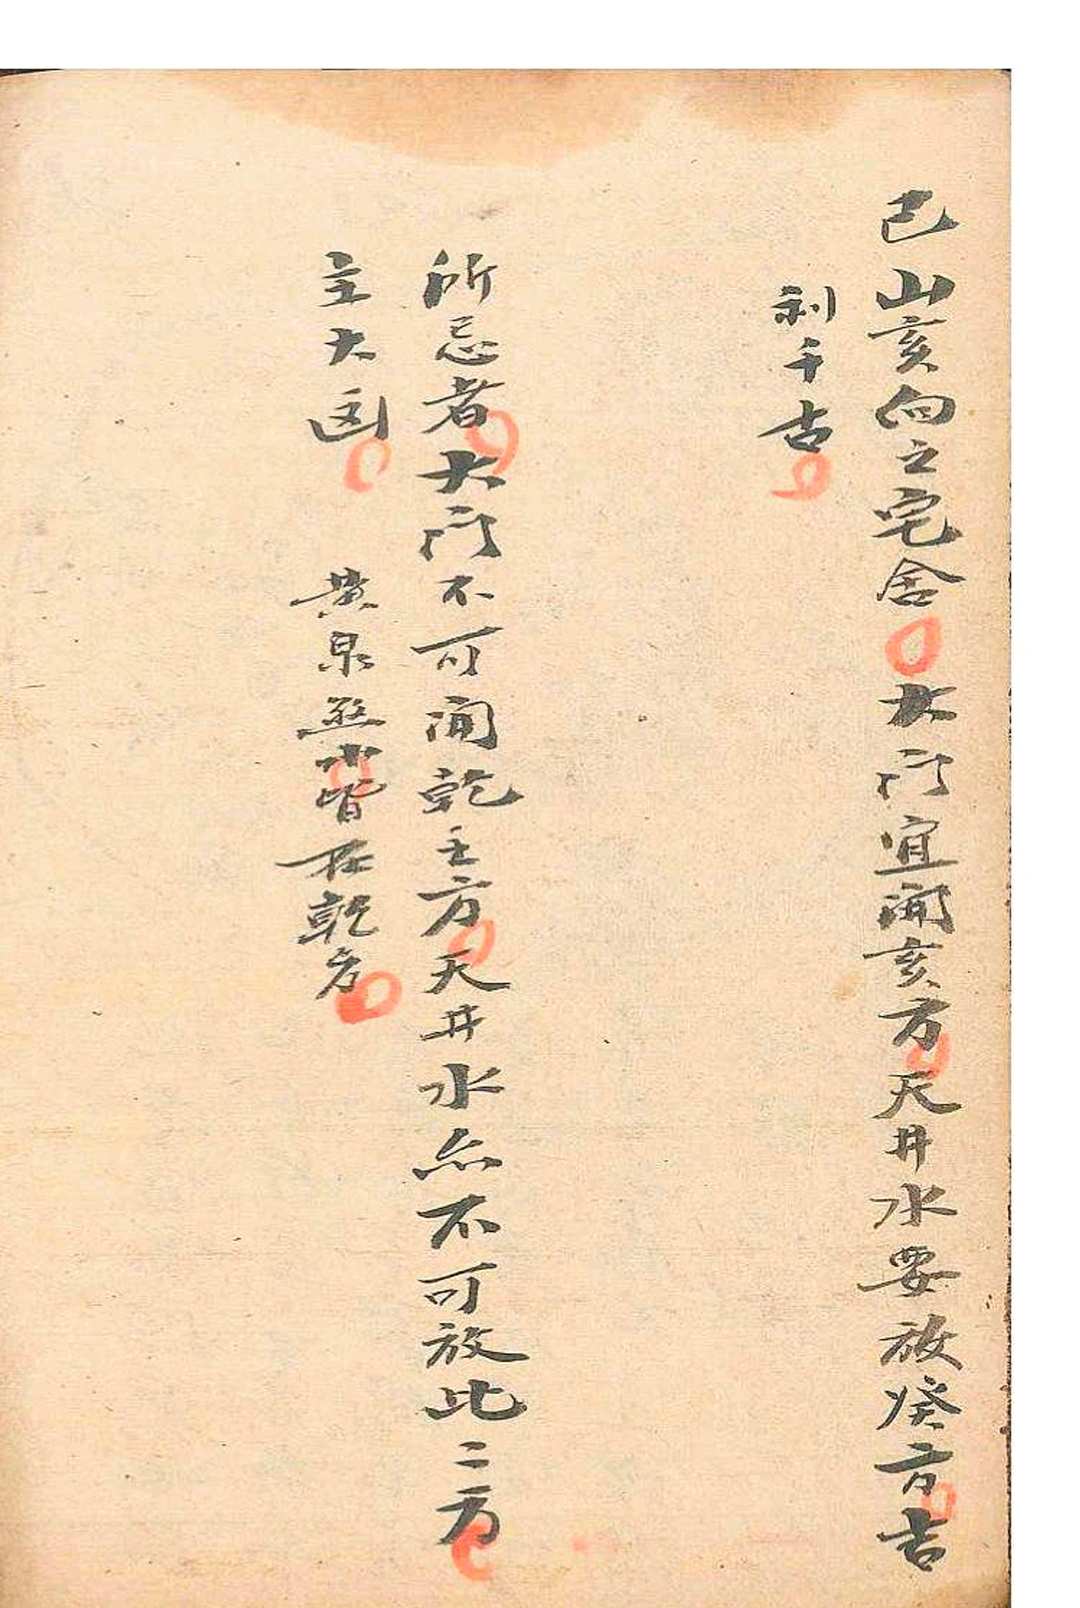 巳山亥向之宅舍大门宜開亥方天井水要放癸方吉
利千古
所忌者大门不可開乾壬方天井水亦不可放比二方
主大凶
黄泉煞水皆在乾方